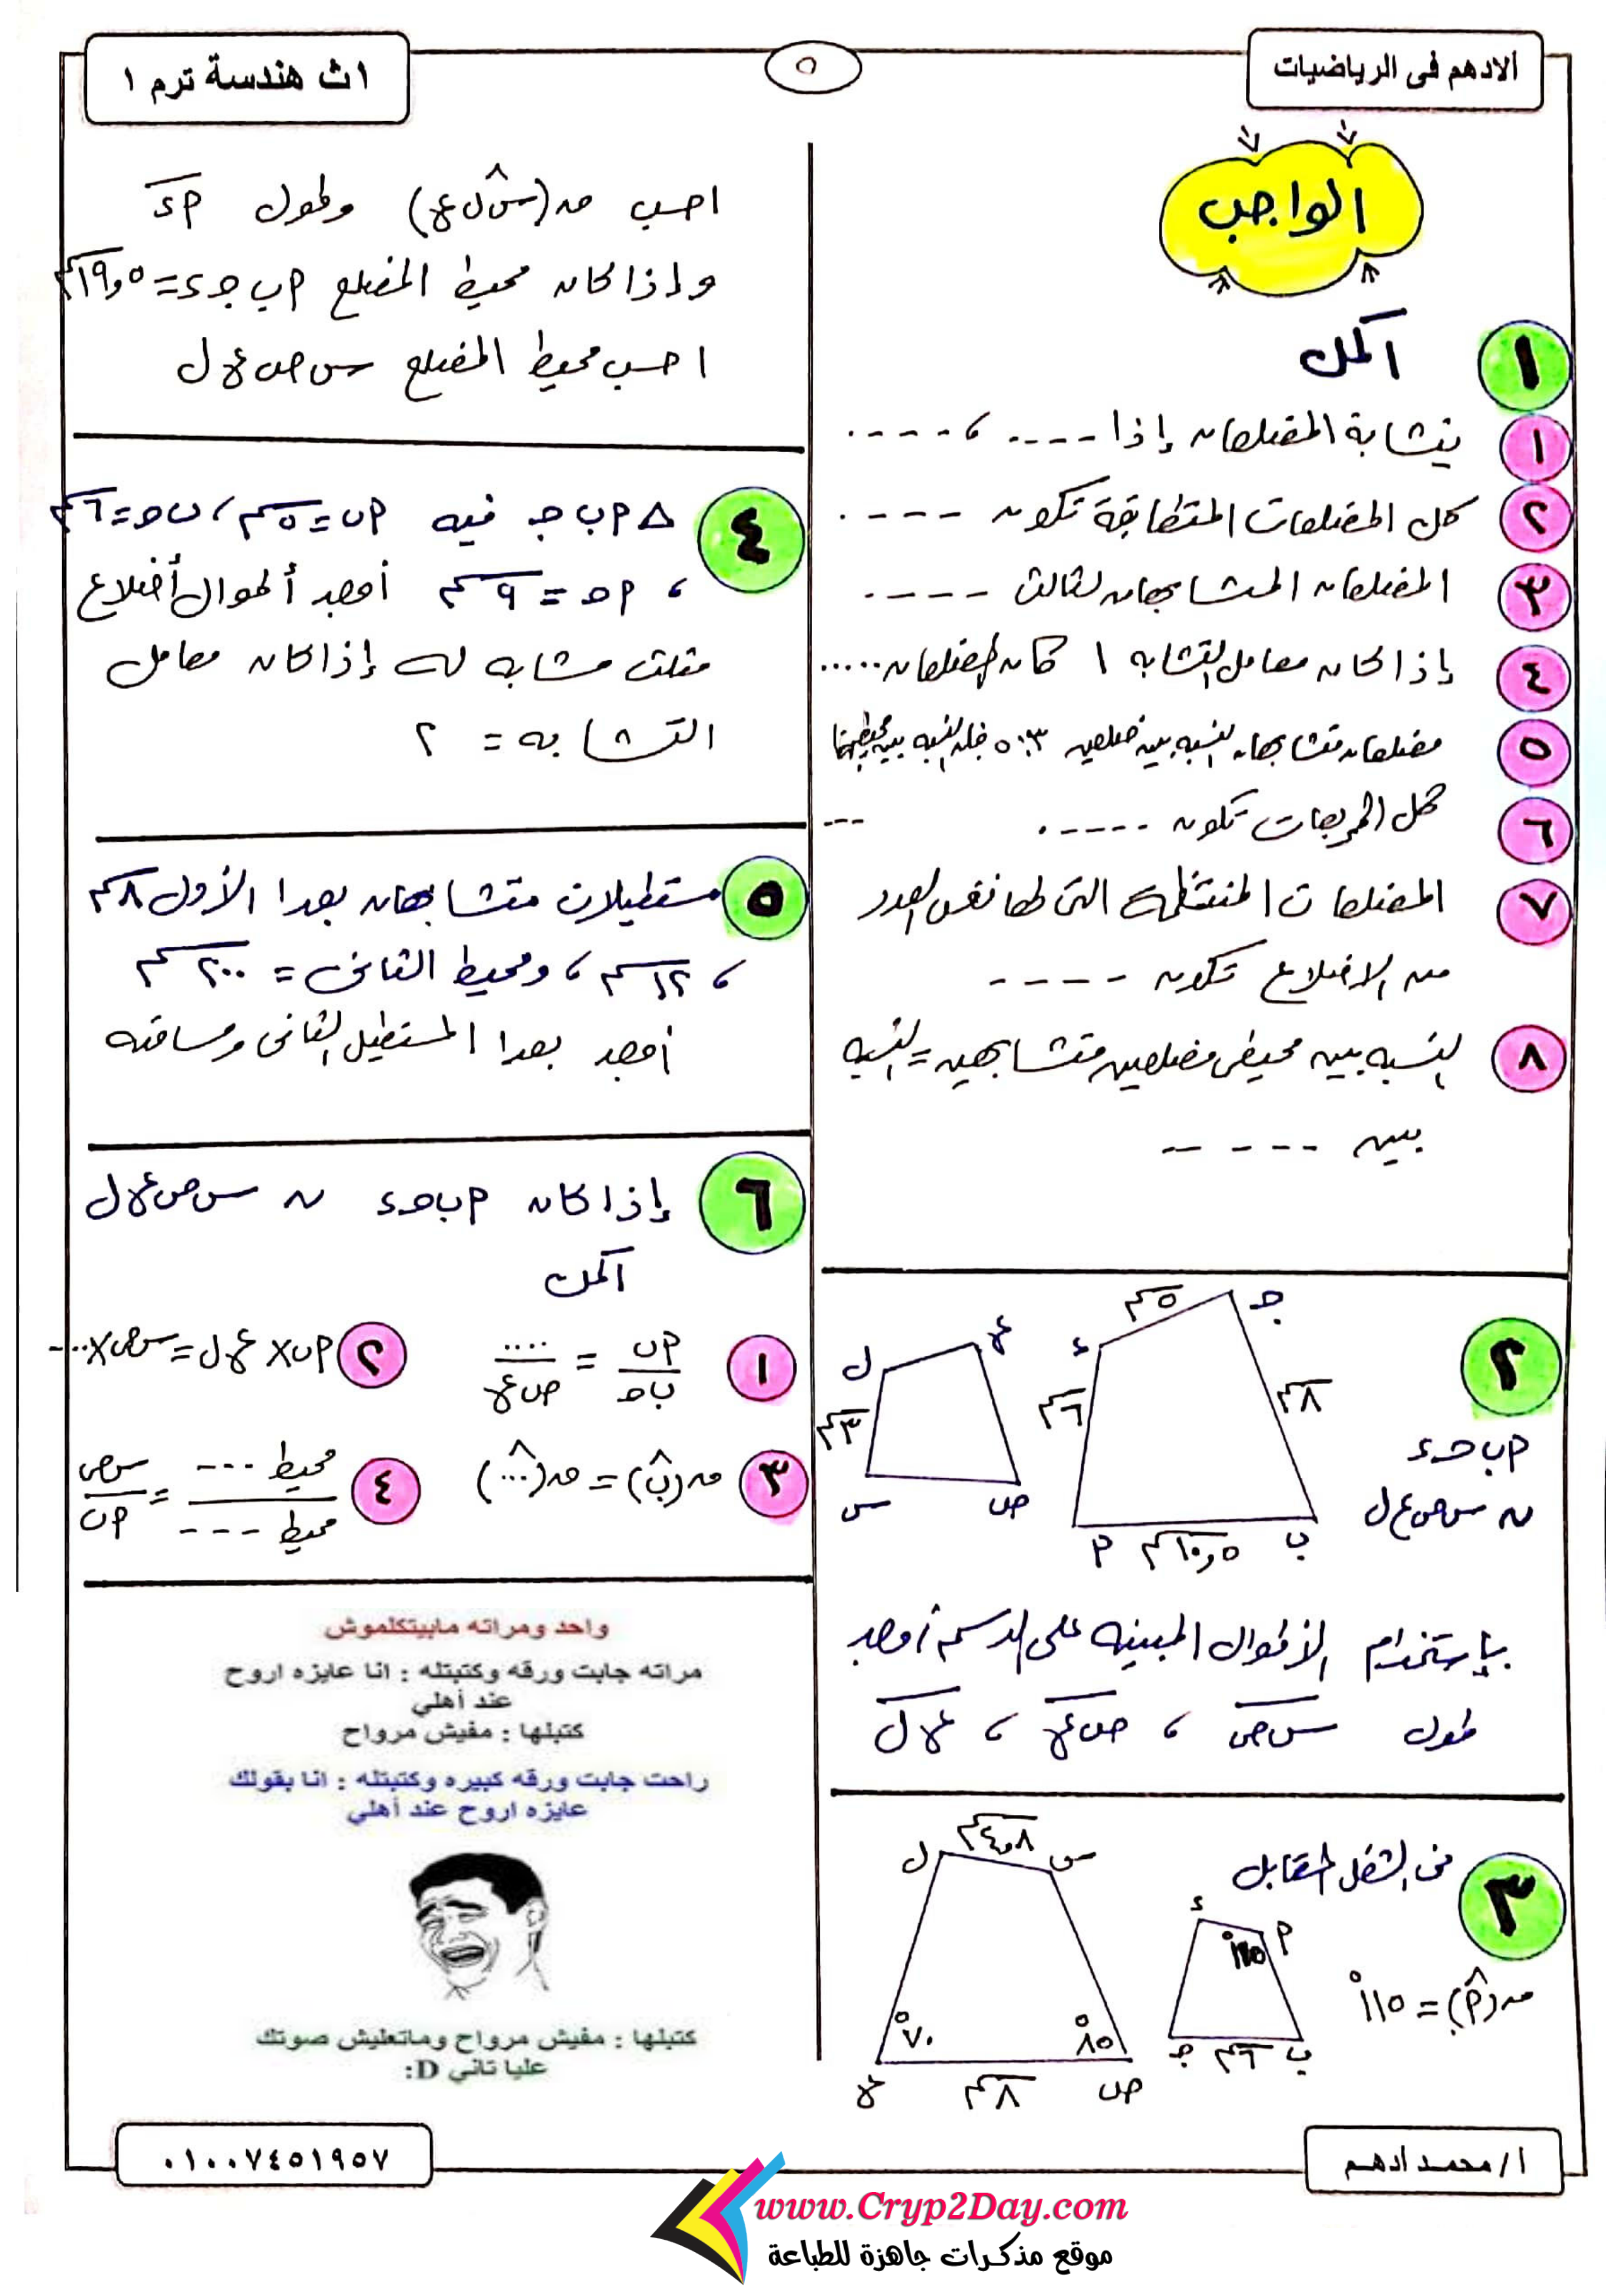 الادهم فى الرياضيات
٥
١ث هندسة ترم ١
الواجب
١ أكمل
١ يتشابة المضلعان إذا ---- ، ----
٢ كل المضلعات المتطابقة تكون ----
٣ المضلعان المتشابهان لثالث ----
٤ إذا كان معامل التشابه ١ كان المضلعان .....
٥ مضلعان متشابهان النسبه بين ضلعين ٣:٥ فإن النسبه بين محيطيهما ---
٦ كل المربعات تكون -----
٧ المضلعات المنتظمة التى لها نفس العدد
من الاضلاع تكون ----
٨ النسبه بين محيطى مضلعين متشابهين = النسبه
بين -----
٢
ج
٥سم
ء
ع
ل
٨سم
٦سم
٣سم
س
ص
٢ ١٠,٥سم ب
٢ب حـ ء
~ س ص ع ل
بإستخدام الأطوال المبينه على الرسم أوجد
طول س ص ، ص ع ، ع ل
٣ فى الشكل المقابل
ل ٤,٨سم س
ء ٢
١١٥°
ق(٢) = ١١٥°
٧٠° ٨٥°
ج ٦سم ب
ع ٨سم ص
احسب ق(س ل ع) وطول ٢ء
وإذا كان محيط المضلع ٢ب جـ ء = ١٩,٥سم
احسب محيط المضلع س ص ع ل
٤ △ ٢ب جـ فيه ٢ب = ٥سم ، ب حـ = ٦سم
، ٢حـ = ٩سم أوجد أطوال أضلاع
مثلث مشابه له إذا كان معامل
التشابه = ٢
٥ مستطيلان متشابهان بعدا الأول ٨سم
، ١٢سم ، ومحيط الثانى = ٢٠٠سم
أوجد بعدا المستطيل الثانى ومساحته
٦ إذا كان ٢ب حـ ء ~ س ص ع ل
أكمل
١ ٢ب / ب حـ = .... / ص ع
٢ ٢ب × ع ل = س ص × ....
٣ ق(ب) = ق(...)
٤ محيط --- / محيط --- = س ص / ٢ب
واحد ومراته مابيتكلموش
مراته جابت ورقه وكتبتله : انا عايزه اروح
عند أهلي
كتبلها : مفيش مرواح
راحت جابت ورقه كبيره وكتبتله : انا بقولك
عايزه اروح عند أهلي
كتبلها : مفيش مرواح وماتعليش صوتك
عليا تاني D:
أ/محمد ادهم
٠١٠٠٧٤٥١٩٥٧
www.Cryp2Day.com
موقع مذكرات جاهزة للطباعة